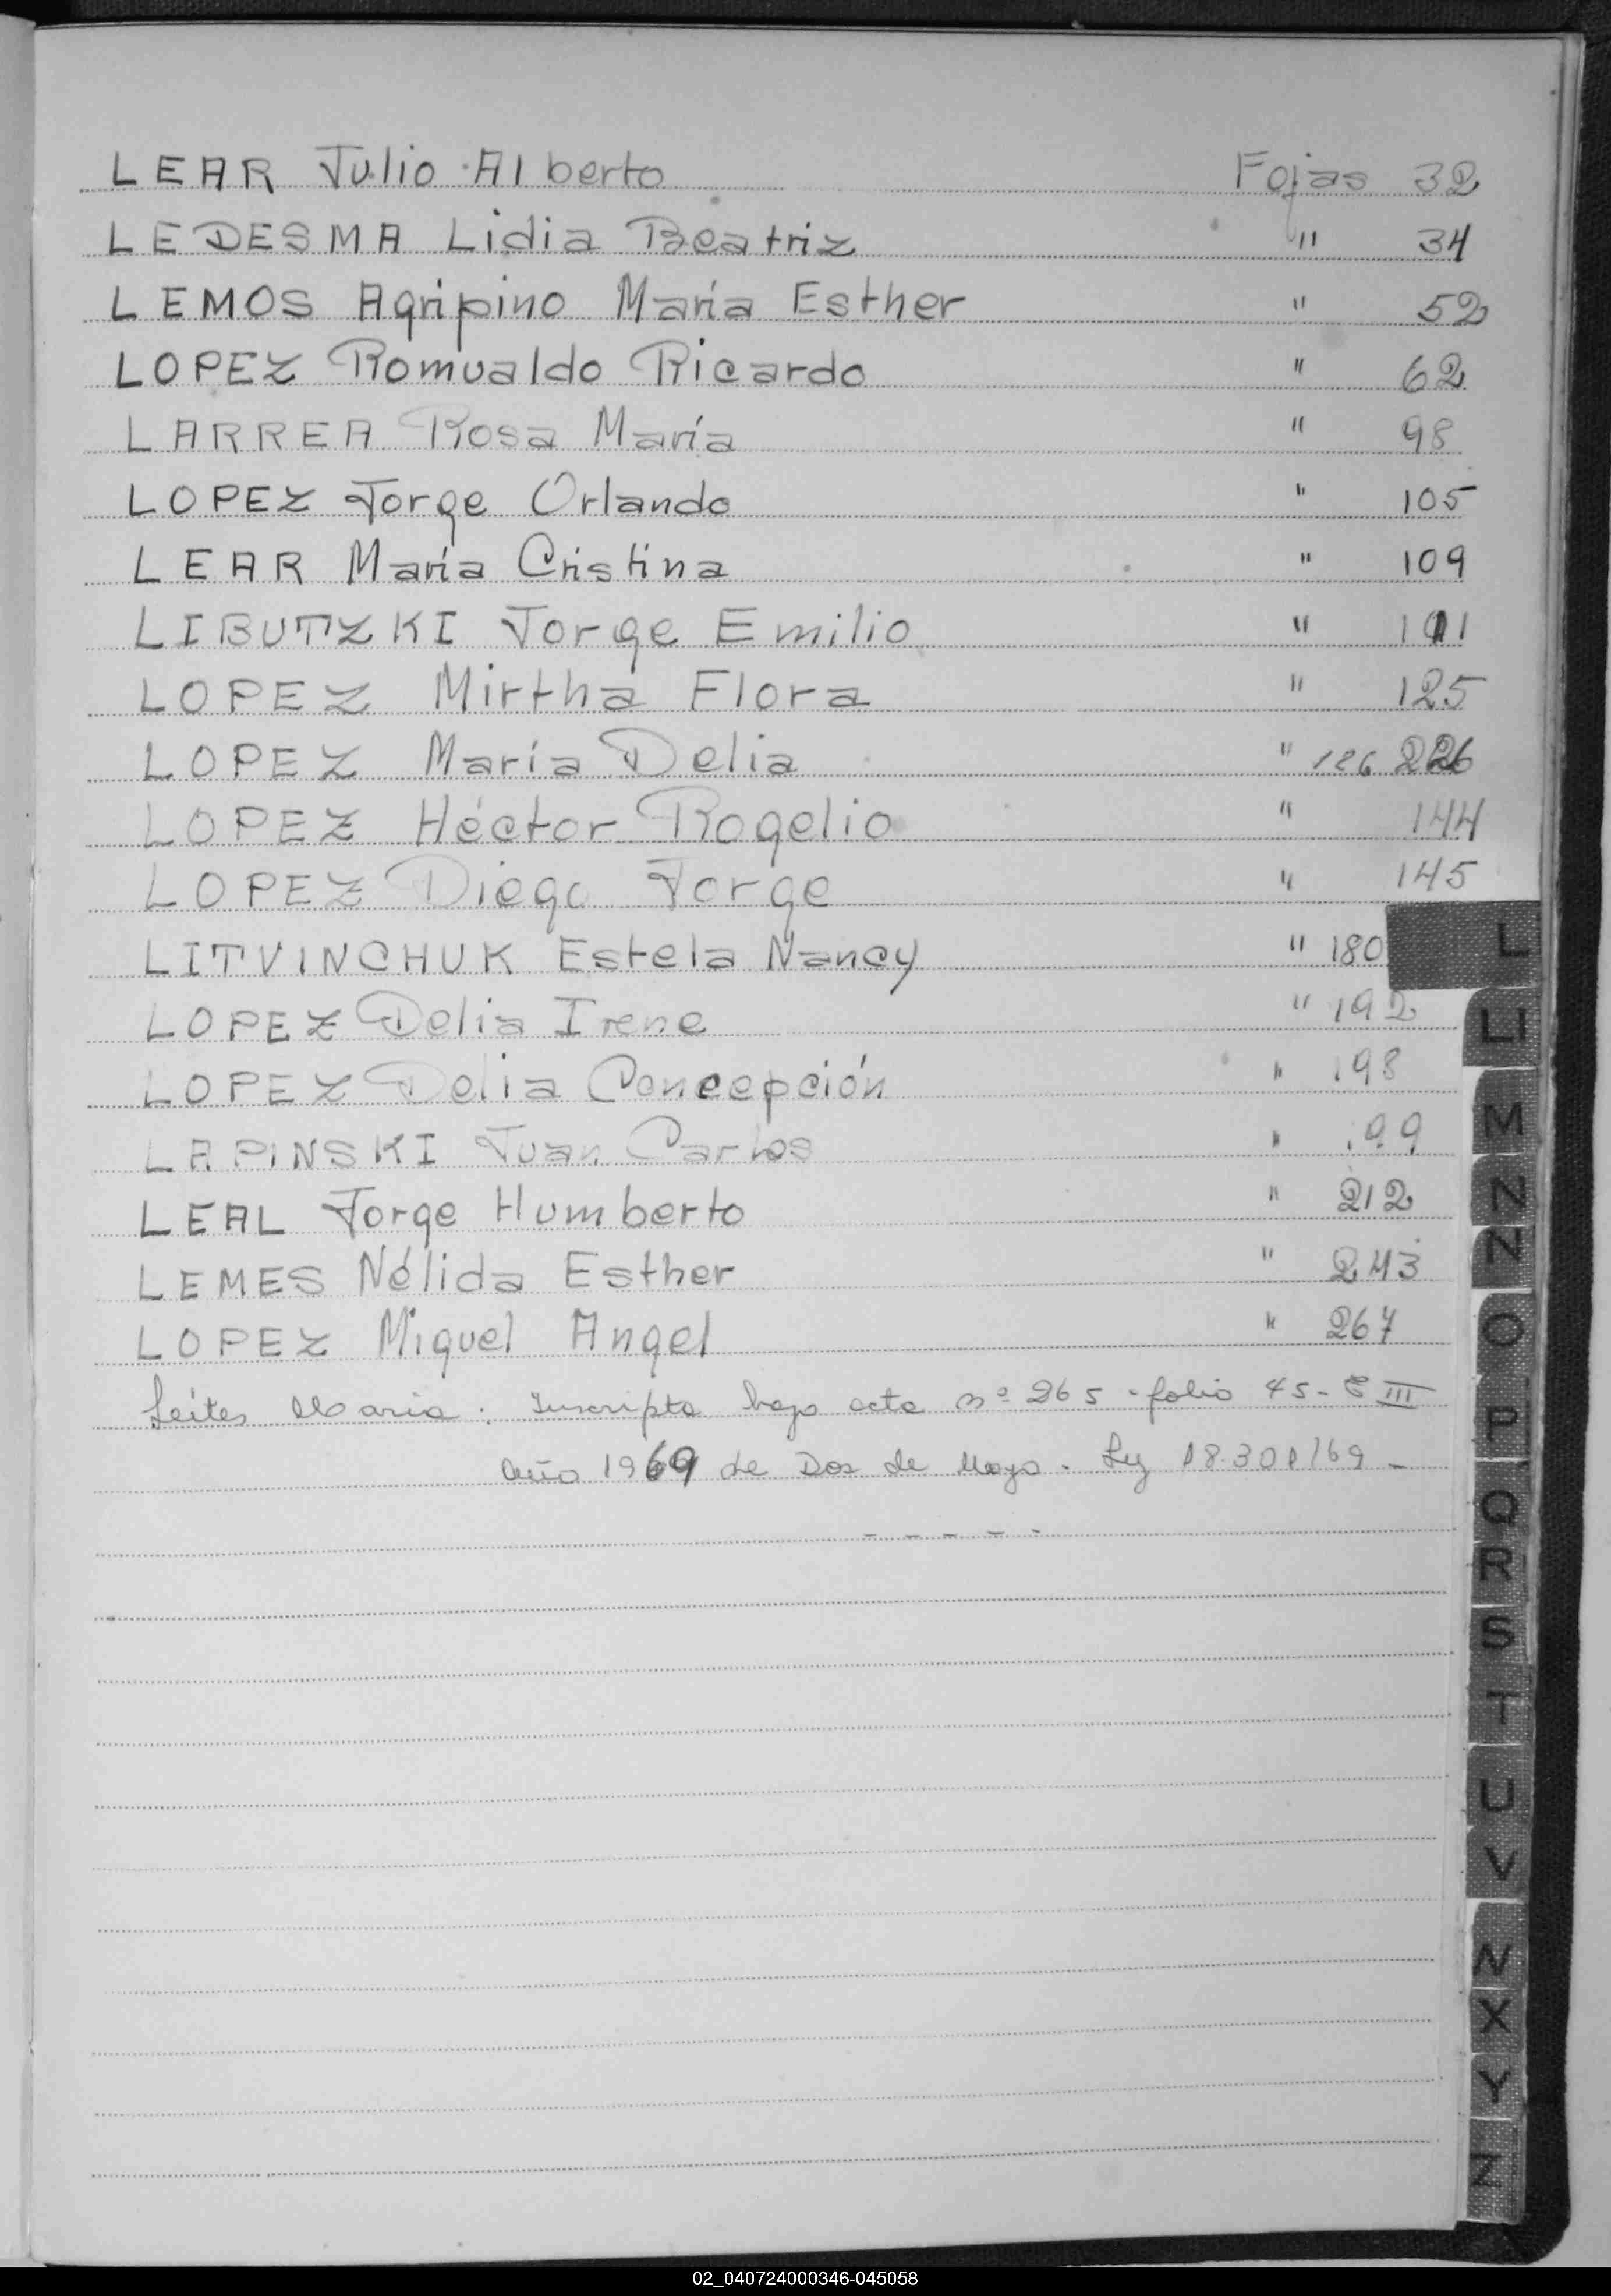 LEAR Julio Alberto Fojas 32
LEDESMA Lidia Beatriz " 34
LEMOS Agripino María Esther " 52
LOPEZ Romualdo Ricardo " 62
LARREA Rosa María " 98
LOPEZ Jorge Orlando " 105
LEAR María Cristina " 109
LIBUTZKI Jorge Emilio "
LOPEZ Mirtha Flora " 125
LOPEZ María Delia " 126 226
LOPEZ Héctor Rogelio " 144
LOPEZ Diego Jorge " 145
LITVINCHUK Estela Nancy " 180
LOPEZ Delia Irene " 192
LOPEZ Delia Concepción " 198
LAPINSKI Juan Carlos " 199
LEAL Jorge Humberto " 212
LEMES Nélida Esther " 243
LOPEZ Miguel Angel " 267
Leites Maria. Inscripta bajo acta nº 265 - folio 45 - T III
Año 1969 de Dos de Mayo. Ley 18.301/69 -
- - - - -
L
Ll
M
N
Ñ
O
P
Q
R
S
T
U
V
W
X
Y
Z
02_040724000346-045058